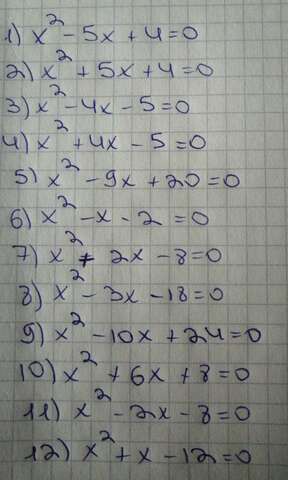 1) x² - 5x + 4 = 0
2) x² + 5x + 4 = 0
3) x² - 4x - 5 = 0
4) x² + 4x - 5 = 0
5) x² - 9x + 20 = 0
6) x² - x - 2 = 0
7) x² + 2x - 8 = 0
8) x² - 3x - 18 = 0
9) x² - 10x + 24 = 0
10) x² + 6x + 8 = 0
11) x² - 2x - 8 = 0
12) x² + x - 12 = 0